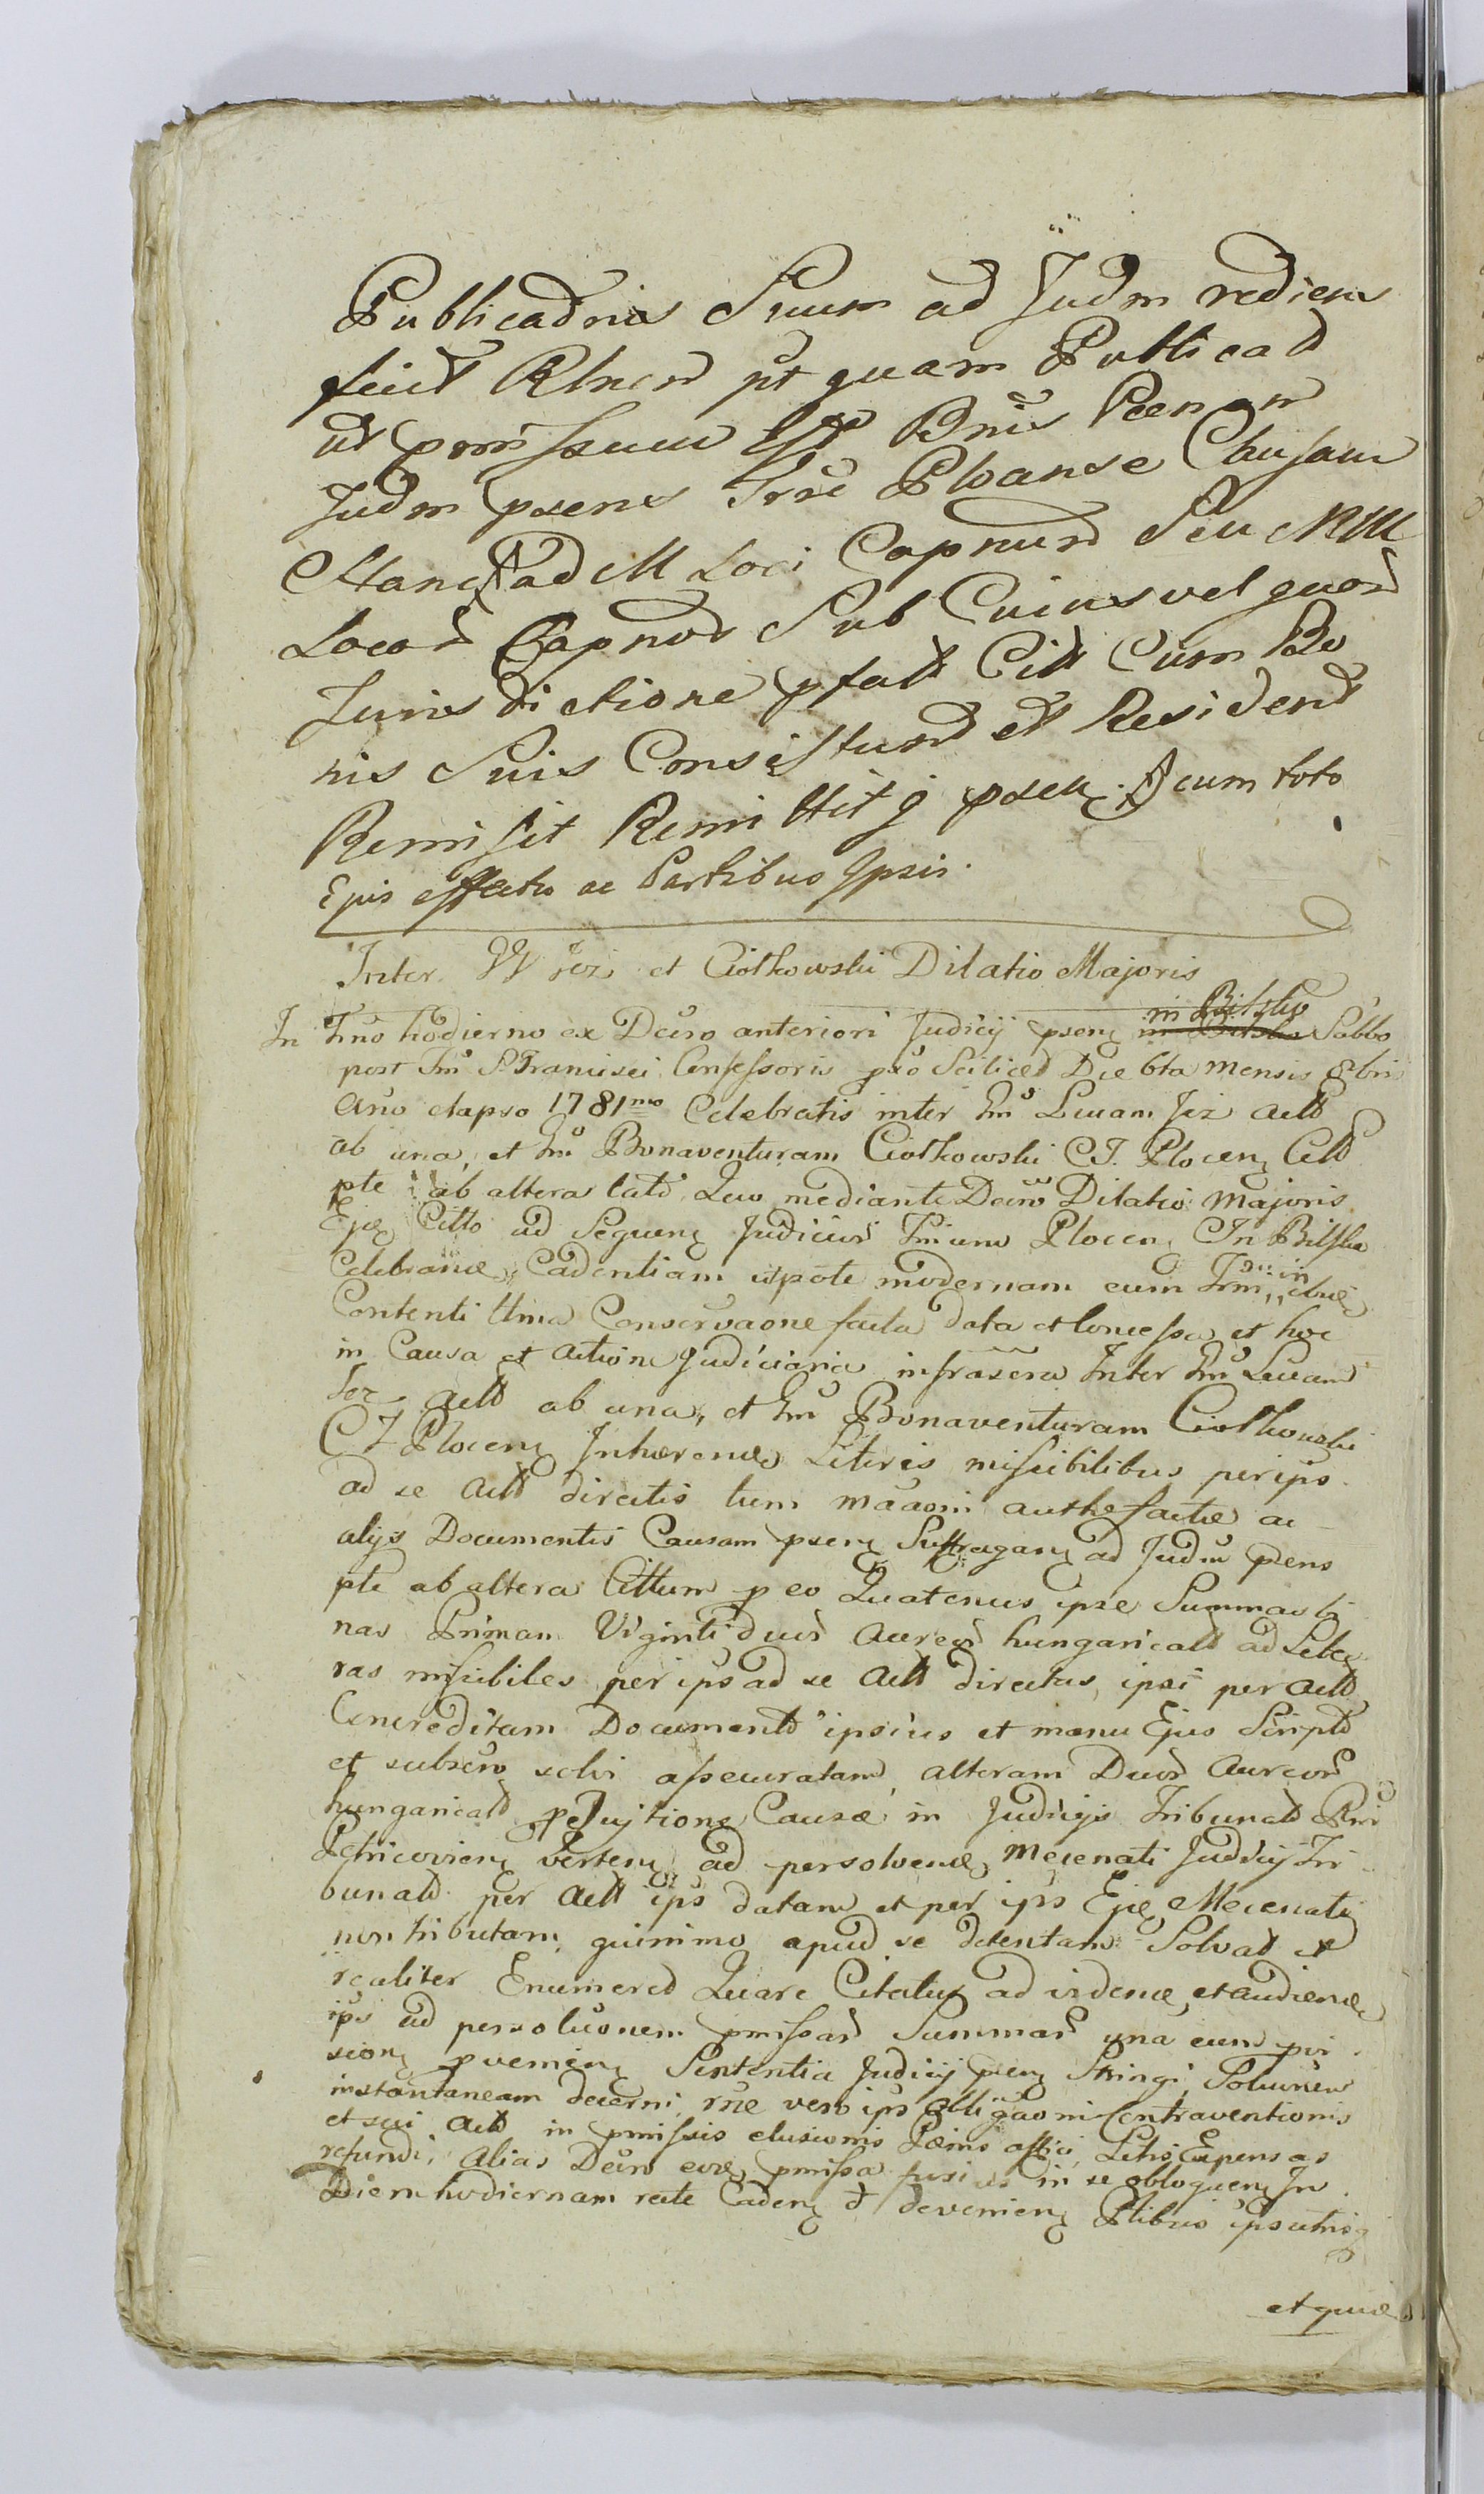 Publicadnis Suum ad Judm rediens
fecit Rlncm pt quam Publicad
ut pmissum Est Bnis Paenam
Judm psens Trae Plocense Causam
Hanc ad M Loci Capnund Seu MM
Locor Capnod Sub Cuiusvel quor
Jurisdictione pfatt Citt Cum Bo
nis Suis Consistund et Resident
Remisit Remittitq psen cum toto
Ejus effectu ac Partibus Ipsis.
Inter W Jez et Ciołkowski Dilatio Majoris
In Tno hodierno ex Decro anteriori Judicij psenz in Bilsko Sabbo
post Fm S Francisci Confessoris pro Scilicet Die 6ta mensis 8bris
Ano elapso 1781mo Celebratis inter Gm Lucam Jez Actt
ab una, et Gm Bonaventuram Ciołkowski CT. Plocenz Citt
pte ab altera lato, Quo mediante Decro Dilatio Majoris
Ejq Citto ad Sequenz Judicior Trium Plocenz In Bilsko
Celebrand Cadentiam utpote modernam cum Trm
Contenti Una Conservaone facta data et concessa et hoc
in Causa et Actione Judiciaria infrascra Inter Gm Lucam
Jez Actt ab una, et Gm Bonaventuram Ciołkowski
CT Plocenz Inhaerendo Literis missibilibus per ips
ad se Actt directis tum maaoni authe factae ac
alijs Documentis Causam psenz Suffraganz ad Judm psens
pte ab altera Cittum p eo Quatenus ipse Summas bi
nas Primam Viginti duor Aureor hungaricall ad Lite
ras missibiles per ips ad se Actt directas, ipsi per Actt
Concreditam Documento ipsius et manu Ejus Script
et subscro solvi assecuratam, alteram Duor Aureor
hungaricall pcujtione Causae in Judicijs Tribunall Rni
Petricovienz vertenz ad persolvend Mecenati Judicij Tri
bunall per Actt ips datam et per ips Ejq Mecenati
non tributam, quinimo apud se detentam Solvat et
realiter Enumeret Quare Citatus ad vidend et audiend
ips ad persoluonem pmissar Summar una cum pvi
sionz pvenienz Sententia Judicij psenz Stringi, Soluonem
instantaneam decerni, rne vero ips obligaoni Contraventionis
et sui Actt in pmissis elusionis Paenis affici, Litis Expensas
refundi, Alias Decro eoq pmissa fusius in se obloquenz In
Diem hodiernam recte Cadenz et devenienz Ptibus ips utrisq
et quid